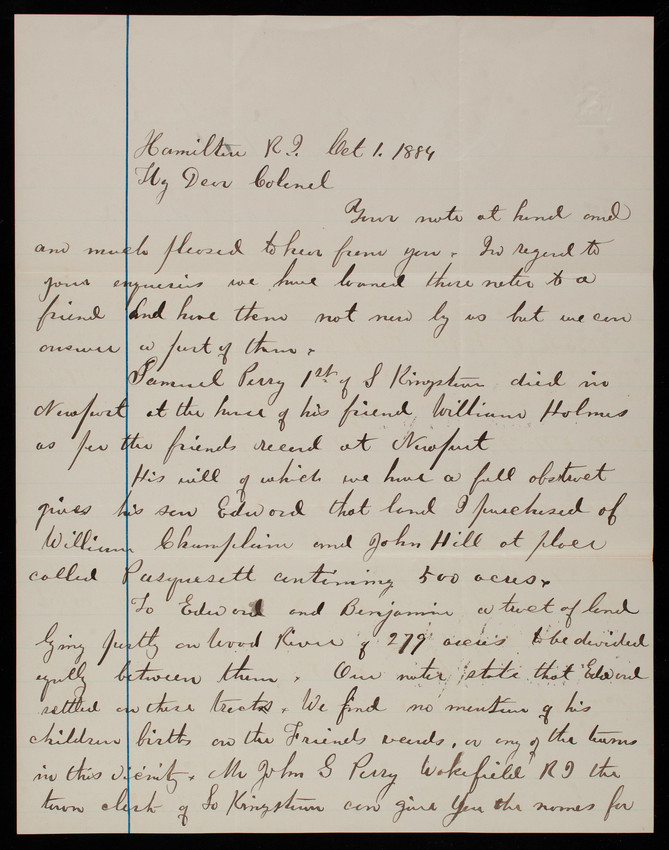 Hamilton R.I. Oct 1. 1884
My Dear Colonel
Your note at hand and
are much pleased to hear from you. In regard to
your enqueries we have loaned those notes to a
friend and have them not now by us but we can
answer a part of them.
Samuel Perry 1st of S Kingstown died in
Newport at the house of his friend William Holmes
as per the friends record at Newport
His will of which we have a full abstract
gives his son Edward that land I purchased of
William Champlain and John Hill at place
called Pasquesett containing 500 acres.
To Edward and Benjamin a tract of land
lying partly on Wood River of 279 acres to be divided
eqully between them. Our notes state that Edward
settled on these tracts. We find no mention of his
children births on the Friends records, or any of the towns
in this vicinity. Mr John G Perry Wakefield R I the
town clerk of So Kingstown can give you the names for